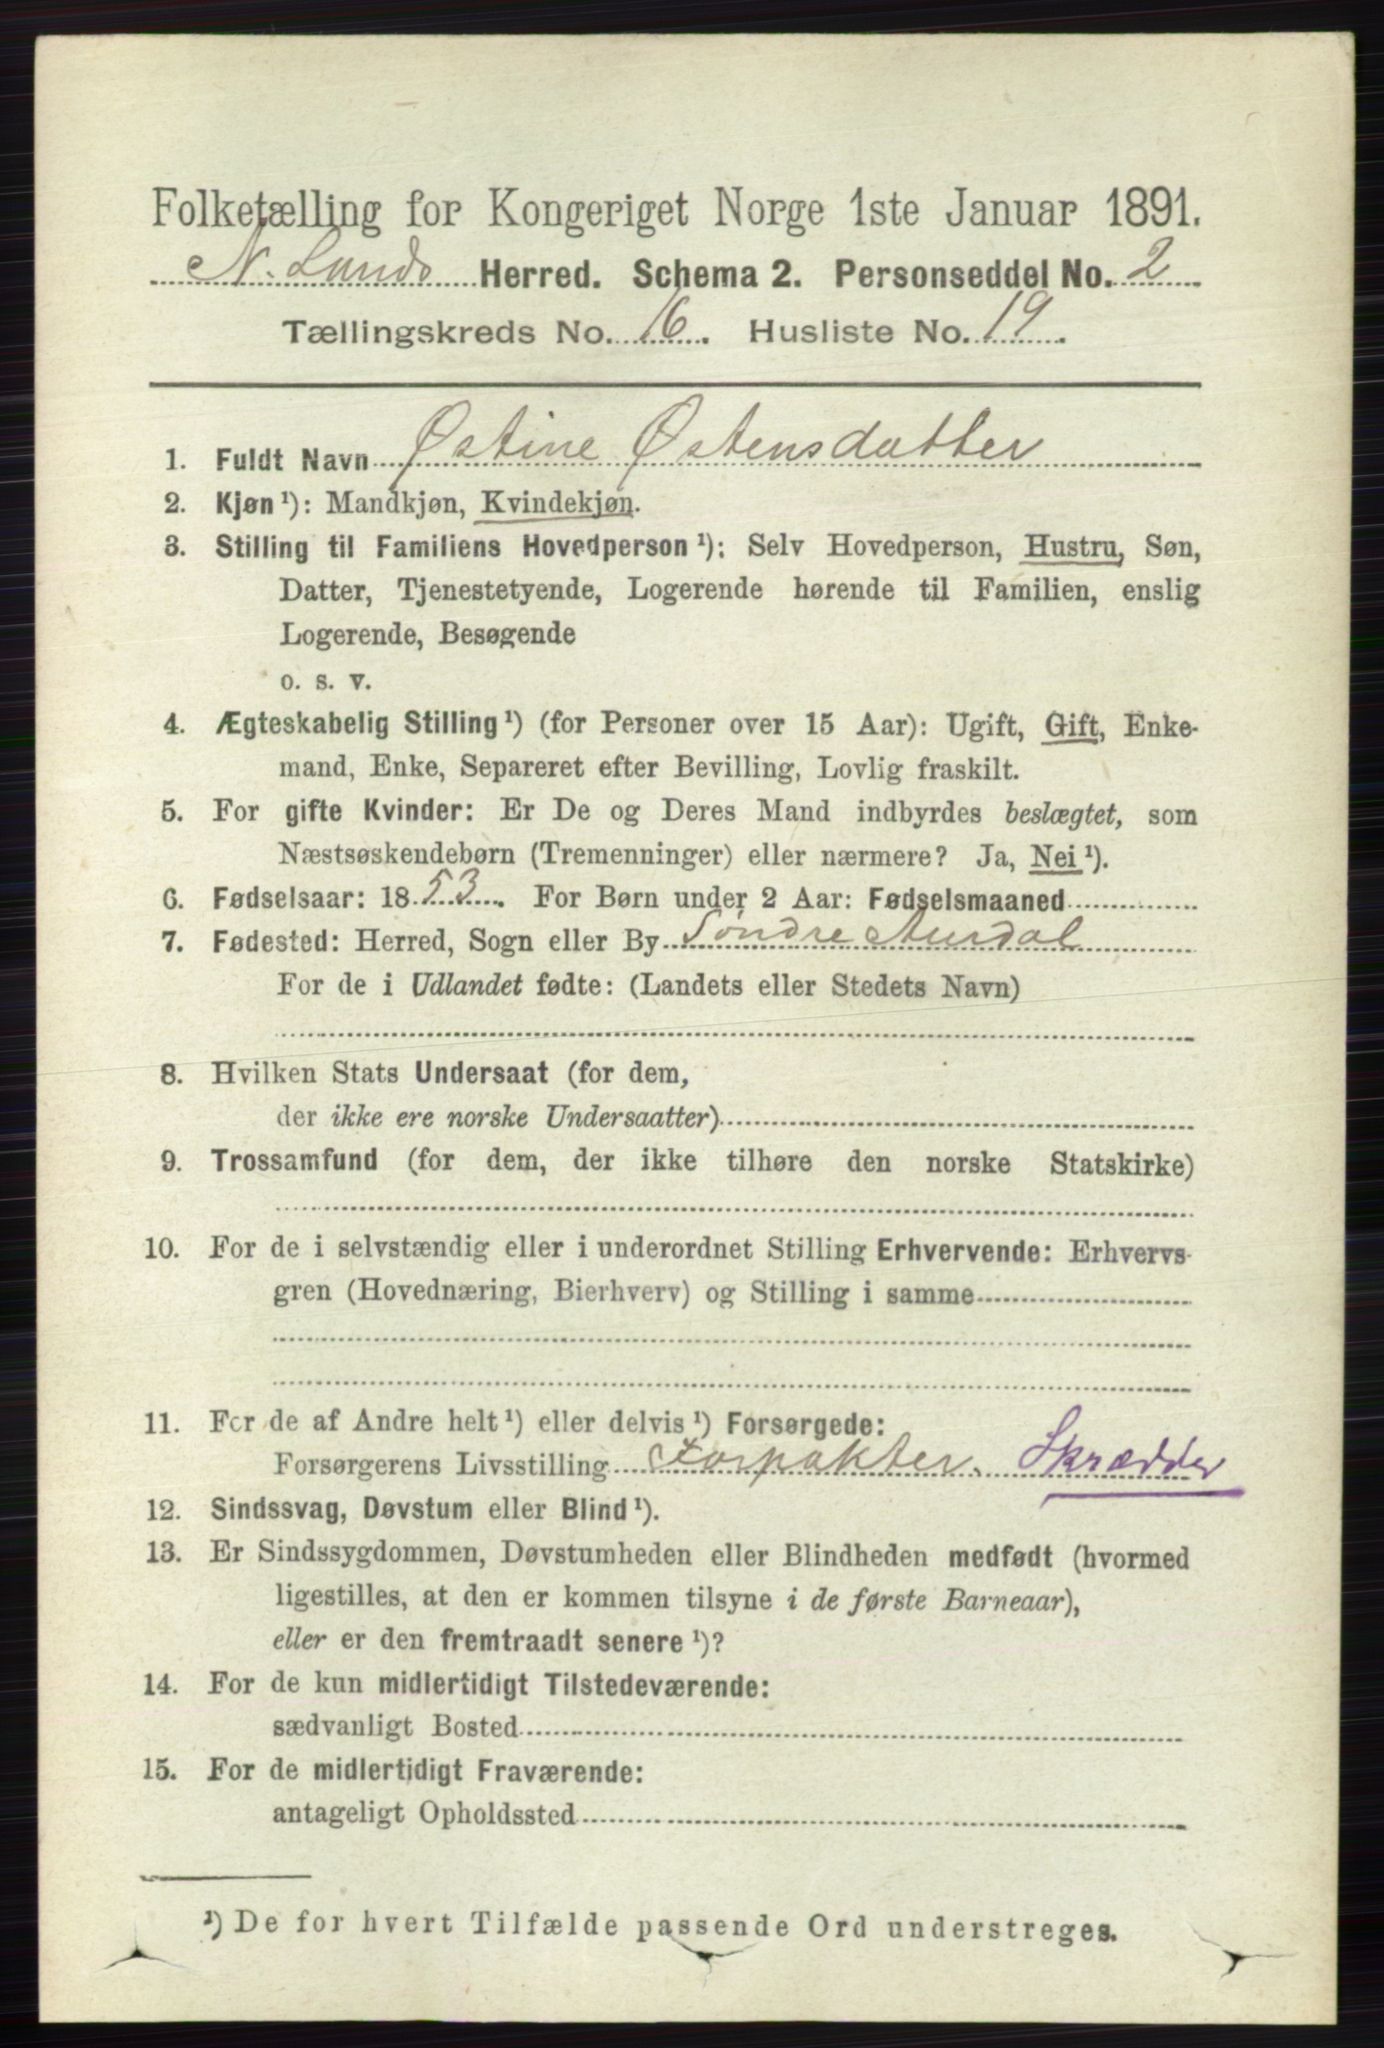 Folketælling for Kongeriget Norge 1ste Januar 1891.
N. Lands Herred. Schema 2. Personseddel No. 2
Tællingskreds No. 16. Husliste No. 19.
1. Fuldt Navn Østine Østensdatter
2. Kjøn ¹): Mandkjøn, Kvindekjøn.
3. Stilling til Familiens Hovedperson ¹): Selv Hovedperson, Hustru, Søn,
Datter, Tjenestetyende, Logerende hørende til Familien, enslig
Logerende, Besøgende
o. s. v.
4. Ægteskabelig Stilling ¹) (for Personer over 15 Aar): Ugift, Gift, Enke-
mand, Enke, Separeret efter Bevilling, Lovlig fraskilt.
5. For gifte Kvinder: Er De og Deres Mand indbyrdes beslægtet, som
Næstsøskendebørn (Tremenninger) eller nærmere? Ja, Nei ¹).
6. Fødselsaar: 1853. For Børn under 2 Aar: Fødselsmaaned
7. Fødested: Herred, Sogn eller By Søndre Aurdal
For de i Udlandet fødte: (Landets eller Stedets Navn)
8. Hvilken Stats Undersaat (for dem,
der ikke ere norske Undersaatter)
9. Trossamfund (for dem, der ikke tilhøre den norske Statskirke)
10. For de i selvstændig eller i underordnet Stilling Erhvervende: Erhvervs-
gren (Hovednæring, Bierhverv) og Stilling i samme
11. For de af Andre helt ¹) eller delvis ¹) Forsørgede:
Forsørgerens Livsstilling Forpakter. Skrædder
12. Sindssvag, Døvstum eller Blind ¹).
13. Er Sindssygdommen, Døvstumheden eller Blindheden medfødt (hvormed
ligestilles, at den er kommen tilsyne i de første Barneaar),
eller er den fremtraadt senere ¹)?
14. For de kun midlertidigt Tilstedeværende:
sædvanligt Bosted
15. For de midlertidigt Fraværende:
antageligt Opholdssted
¹) De for hvert Tilfælde passende Ord understreges.